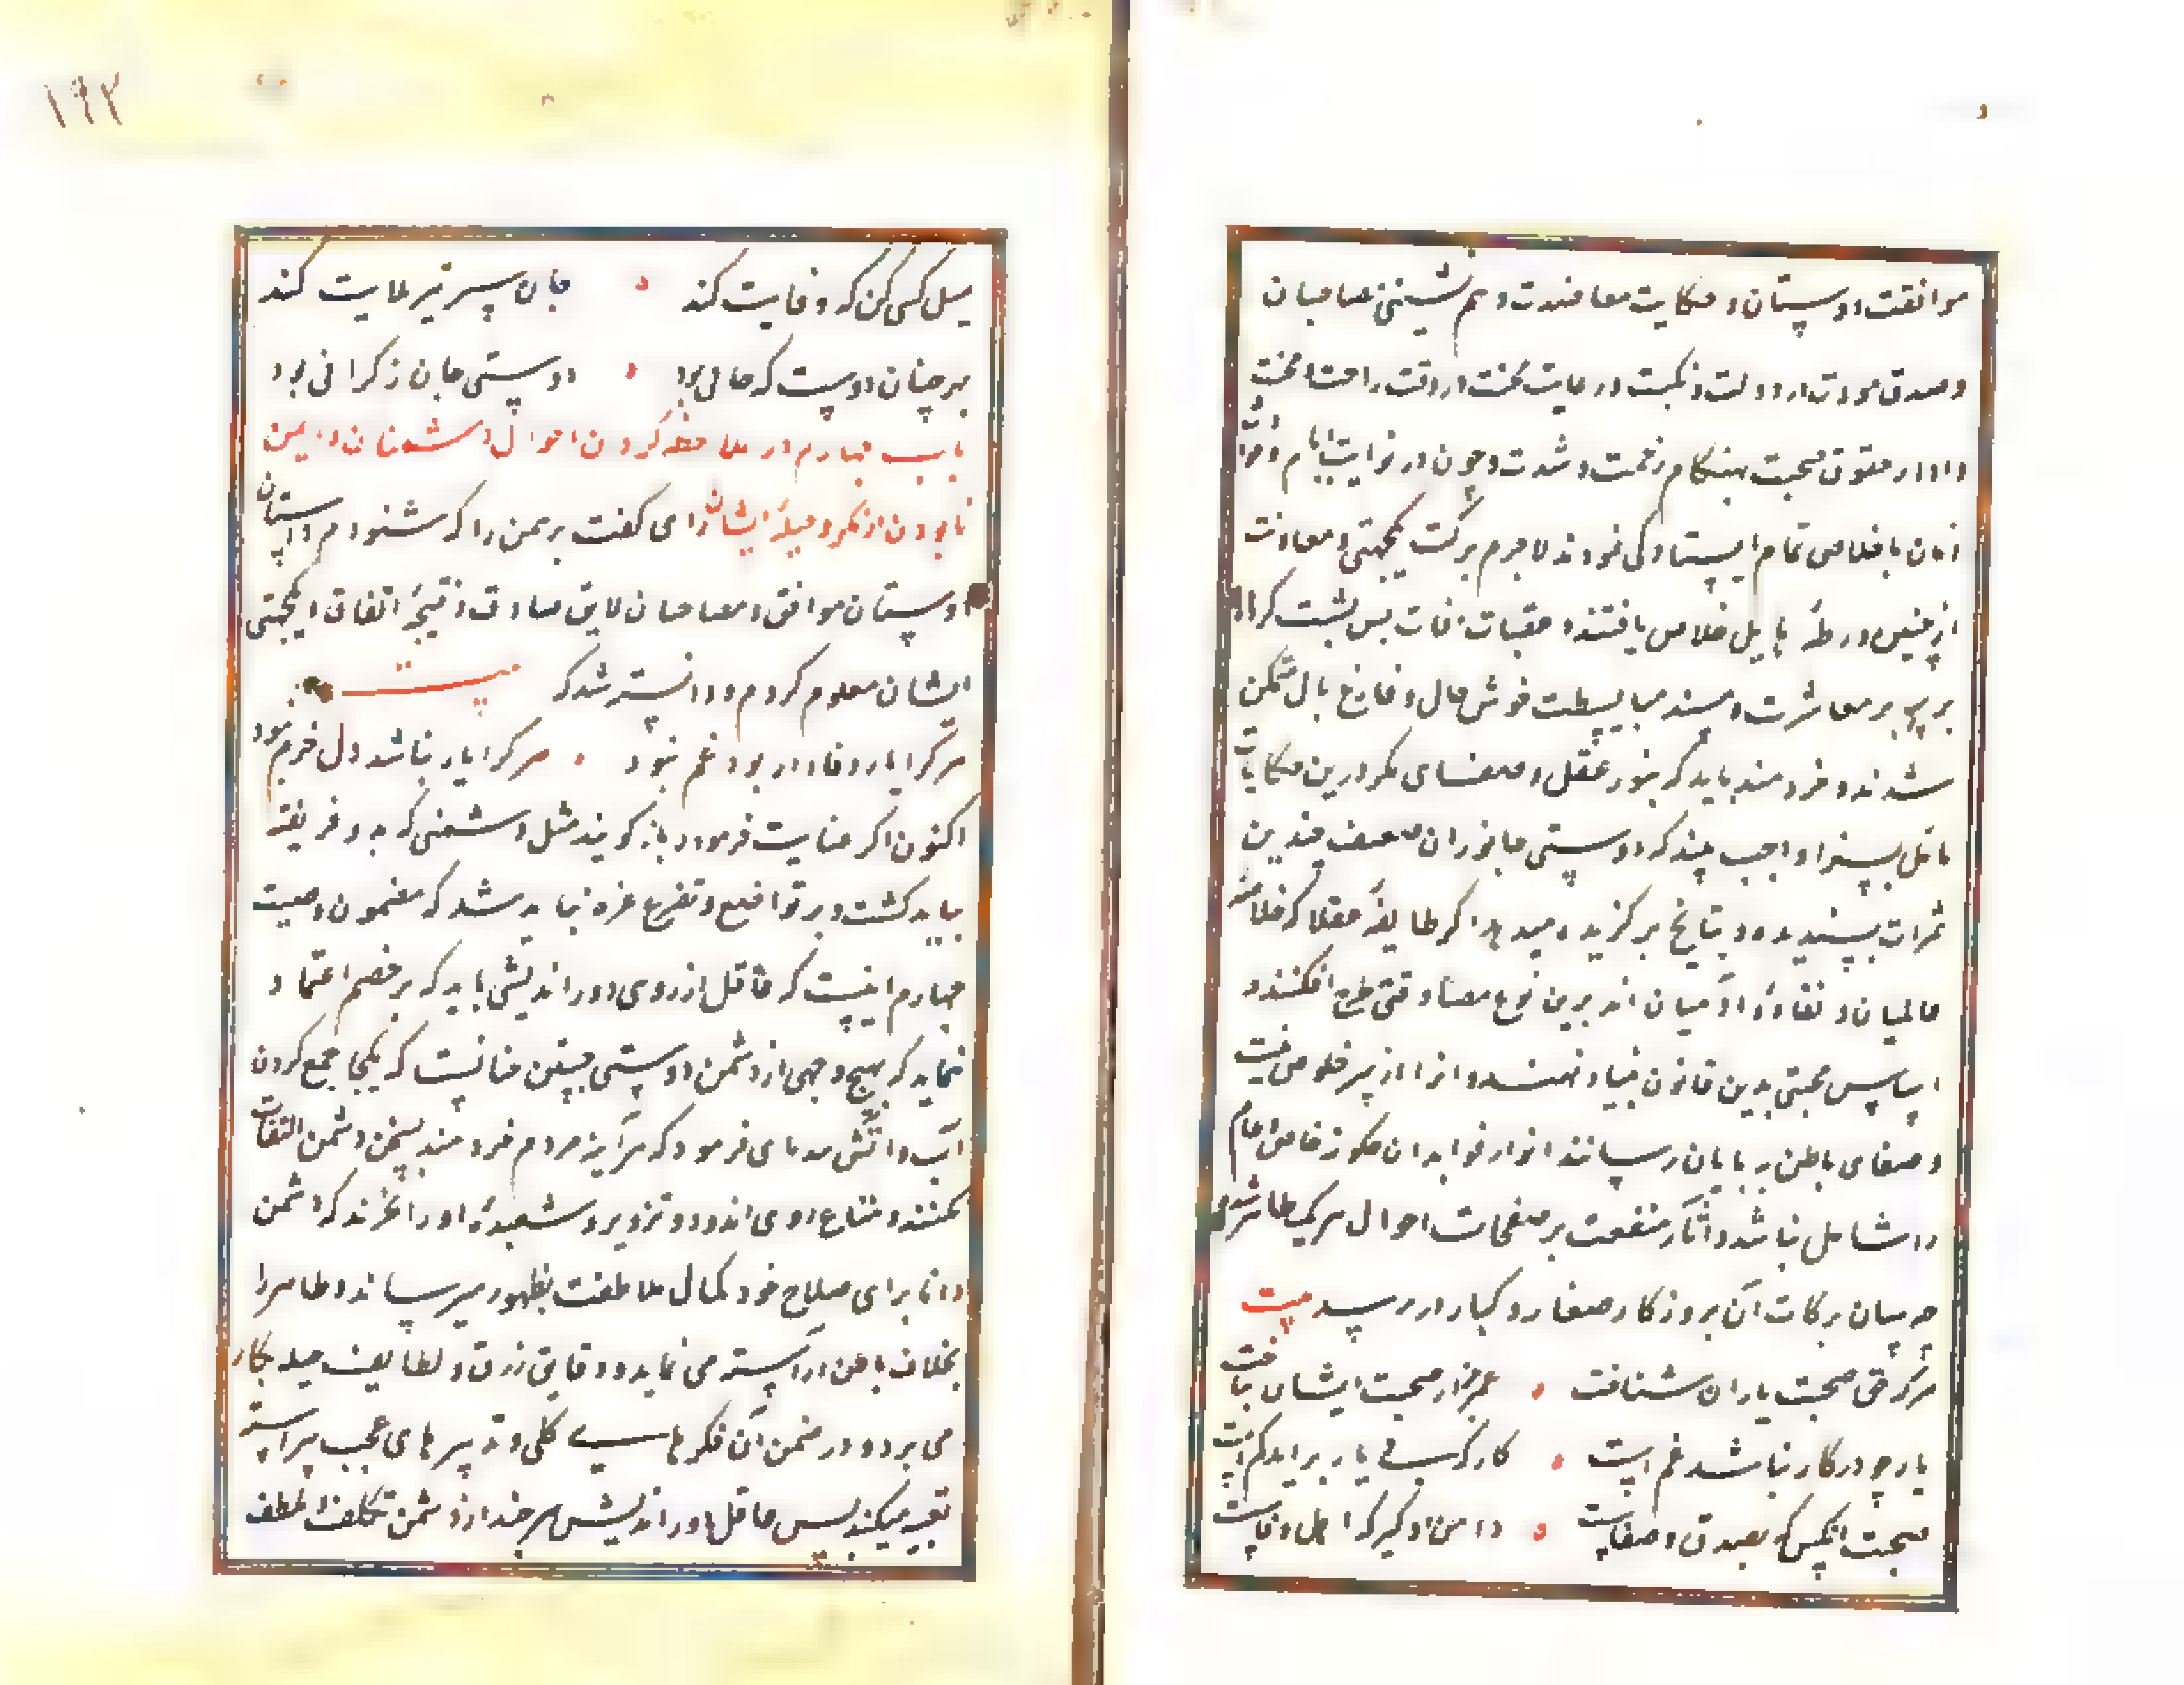 موافقت دوستان و حکایت معاضدت و هم نشینی مصاحبان
و صدق مودت در دولت و نکبت و رعایت محنت در وقت راحت و محنت
و ادا در حقوق صحبت بهنگام زحمت و شدت و چون در نوایب ایام و حوادث
زمان باخلاص تمام ایستادگی نمودند لاجرم ببرکت یکجهتی و معاونت
از چنین ورطهٔ هایل خلاص یافتند و عقبات آفات پس پشت کرده
بر سریر معاشرت و مسند مباسطت خوش حال و فارغ بال متمکن
شدند و خردمند باید که بنور عقل و صفای فکر درین حکایات
تأمل بسزا واجب بیند که دوستی جانوران ضعیف چندین
ثمرات پسندیده و نتایج برگزیده میدهد اگر طایفهٔ عقلا که خلاصهٔ
عالمیان و نقاوهٔ آدمیان اند برین نوع مصادقتی طرح افکنند و
اساس محبتی بدین قانون بنیاد نهند و آنرا از سر خلوص نیت
و صفای باطن بپایان رسانند انوار فواید آن چگونه خاص و عام
را شامل نباشد و آثار منفعت بر صفحات احوال هر یک ظاهر شود
چه سان برکات آن بروزگار صغار و کبار در رسد بیت
هرکه حق صحبت یاران شناخت عمر خود در صحبت ایشان بباخت
یار چو در کار نباشد غم است کار که بی یار براید کم است
صحبت آنکس که بصدق و صفاست دامن او گیر که اهل وفاست
۱۹۲
میل کسی کن که وفایت کند جان سپر تیر بلایت کند
بر چنان دوست که جانی بود دوستی جان ز گرانی بود
باب چهارم در ملاحظه کردن احوال دشمنان و ایمن
نابودن از مکر و حیلهٔ ایشان رای گفت برهمن را که شنودم داستان
دوستان موافق و مصاحبان لایق صادق و نتیجهٔ اتفاق و یکجهتی
ایشان معلوم کردم و دانسته شد که بیت
هرکرا یار وفادار بود غم نبود هرکرا یار نباشد دل خرم نبود
اکنون اگر عنایت فرموده باز گویند مثل دشمنی که بدو فریفته
نباید گشت و بر تواضع و تضرع غره نباید شد که مضمون وصیت
چهارم اینست که عاقل از روی دور اندیشی باید که بر خصم اعتماد
ننماید که بهیچ وجهی از دشمن دوستی جستن چنانست که یکجا جمع کردن
آب و آتش مدعای فرمود که هرآینه مردم خردمند بسخن دشمن التفات
نکنند و متاع روی اندود و تزویر و شعبدهٔ او را نخرند که دشمن
دانا برای صلاح خود کمال ملاطفت بظهور میرساند و ظاهر را
بخلاف باطن آراسته می نماید و دقایق زرق و لطایف حیل بکار
می برد و در ضمن آن فکرهای کلی و تدبیرهای عجب پیراسته
تعبیه میکند پس عاقل دور اندیش هرچند از دشمن تکلف و تلطف